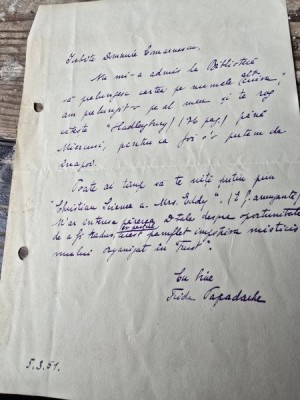 Iubite Domnule Comarnescu,
Nu mi-a admis la Bibliotecă
să prelungesc cartea pe numele altcuiva.
am prelungit-o pe al meu și te rog
citește "Hadleyburg" (76 pag.) până
Miercuri, pentru ca joi s'o putem da
înapoi.
Poate ai timp să te uiți puțin prin
"Christian Science a Mrs. Eddy".
M'ar interesa părerea Dtale despre oportunitatea
de a fi tradus, acest pamflet împotriva misticis
mului organizat în "Trust".
Cu bine
Frida Papadache
5.3.51.